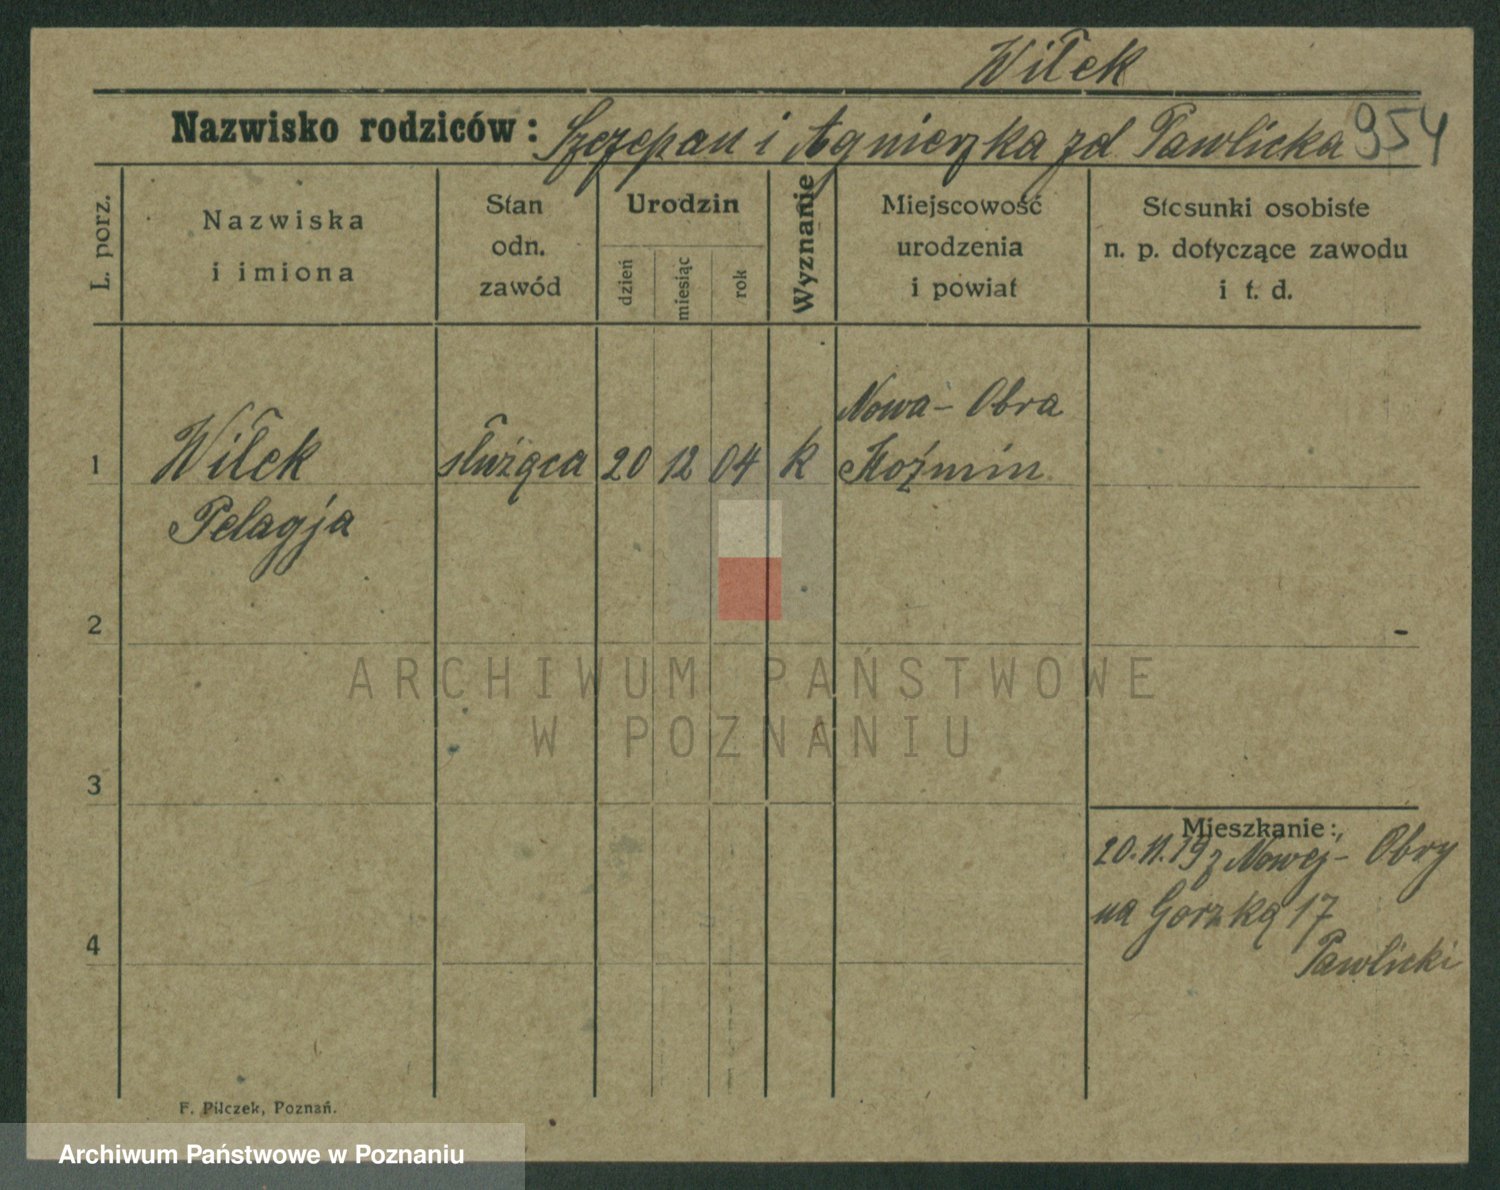 Wiłek
Nazwisko rodziców: Szczepan i Agnieszka zd Pawlicka 954
L. porz.
Nazwiska
i imiona
Stan
odn.
zawód
Urodzin
dzień
miesiąc
rok
Wyznanie
Miejscowość
urodzenia
i powiat
Stosunki osobiste
n. p. dotyczące zawodu
i t. d.
Nowa - Obra
1 Wiłek służąca 20 12 04 k Koźmin
Pelagja
2
ARCHIWUM PAŃSTWOWE
W POZNANIU
3
Mieszkanie:
20.11.19 z Nowej - Obry
na Górzką 17
Pawlicki
4
F. Pilczek, Poznań.
Archiwum Państwowe w Poznaniu